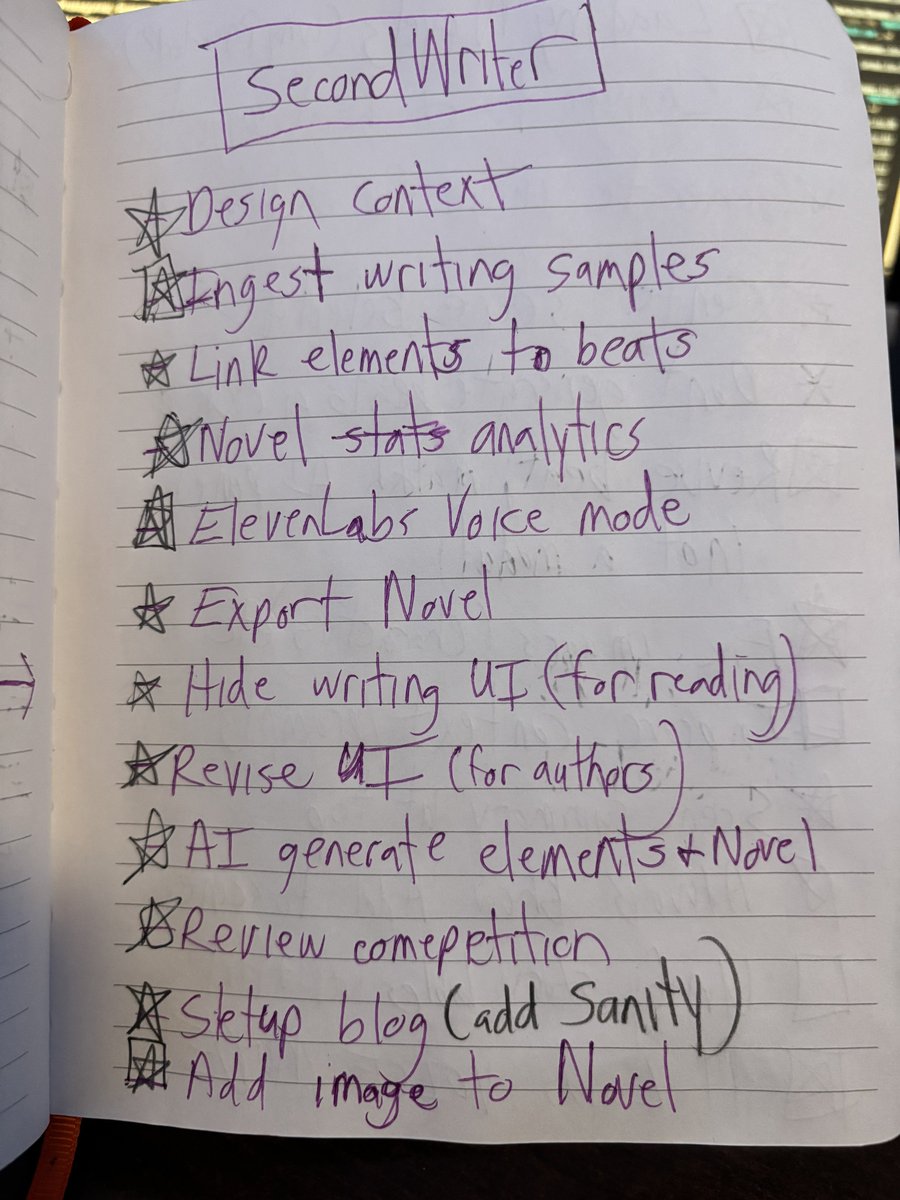 SecondWriter
Design context
Ingest writing samples
Link elements to beats
Novel stats analytics
ElevenLabs Voice mode
Export Novel
Hide writing UI (for reading)
Revise UI (for authors)
AI generate elements + Novel
Review comepetition
Setup blog (add Sanity)
Add image to Novel